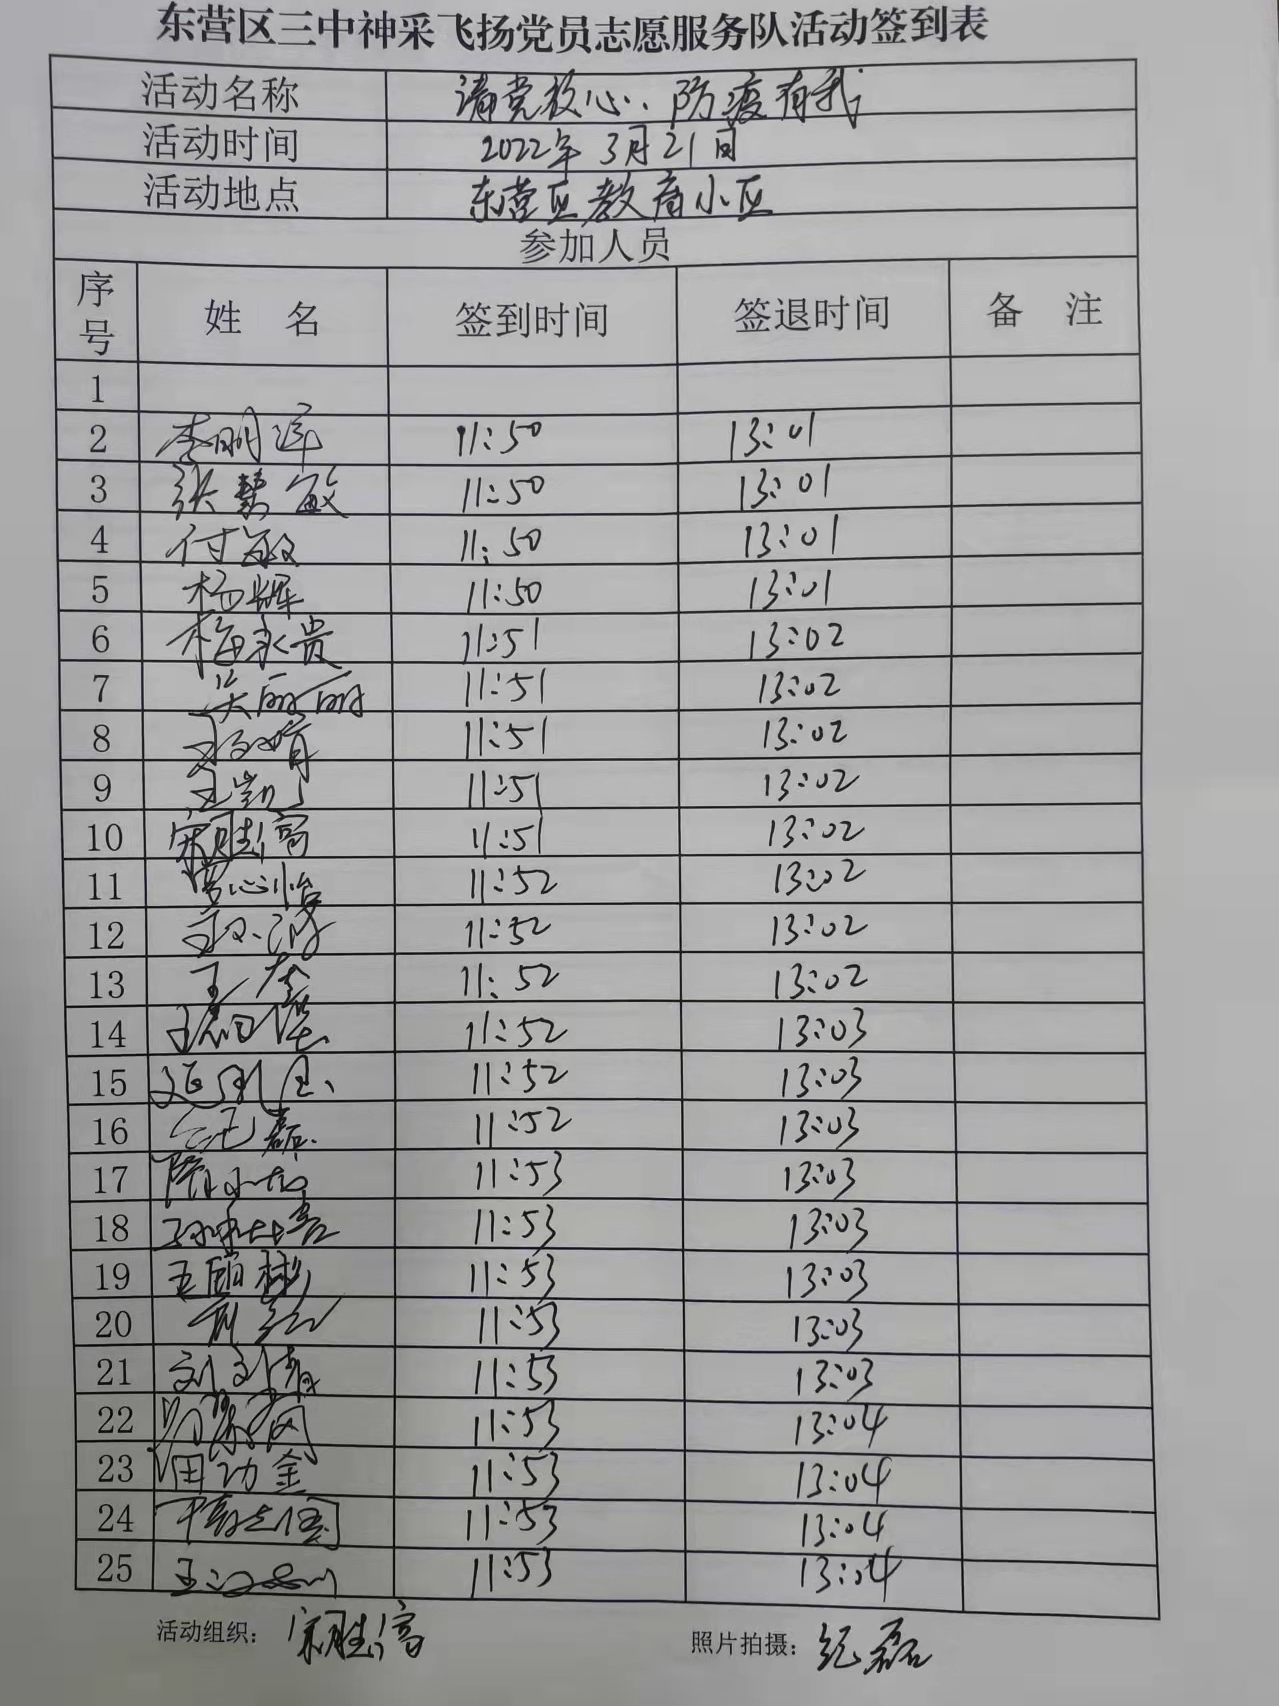 东营区三中神采飞扬党员志愿服务队活动签到表
活动名称 请党放心、防疫有我
活动时间 2022年3月21日
活动地点 东营区教育小区
参加人员
序号 姓 名 签到时间 签退时间 备 注
1
2 李明 11:50 13:01
3 张慧敏 11:50 13:01
4 付敏 11:50 13:01
5 杨辉 11:50 13:01
6 梅永贵 11:51 13:02
7 丽丽 11:51 13:02
8 11:51 13:02
9 王凯 11:51 13:02
10 宋胜高 11:51 13:02
11 心怡 11:52 13:02
12 11:52 13:02
13 王 11:52 13:02
14 王 11:52 13:03
15 延 11:52 13:03
16 磊 11:52 13:03
17 11:53 13:03
18 11:53 13:03
19 王 彬 11:53 13:03
20 11:53 13:03
21 刘 11:53 13:03
22 11:53 13:04
23 田功金 11:53 13:04
24 11:53 13:04
25 王 11:53 13:04
活动组织：宋胜高 照片拍摄：纪磊